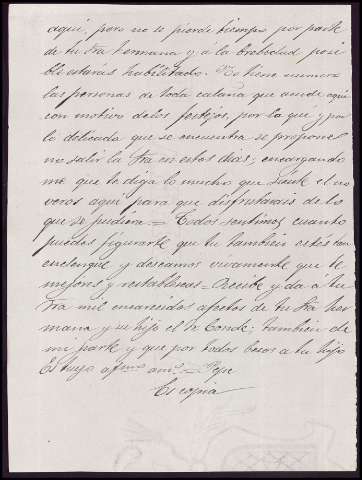 aqui, pero no se pierde tiempo por parte
de tu Sra hermana y á la brebedad posi
ble estarás habilitado. No tiene numero
las personas de toda calaña que acude aqui
con motivo de los festejos, por lo que y por
lo delicada que se encuentra se propone
no salir la Sra en estos dias; encargando
me que te diga lo mucho que siente el no
veros aqui para que disfrutarais de lo
que se pudiera = Todos sentimos cuanto
puedes figurarte que tu tambien estés tan
enclenque y deseamos vivamente que te
mejores y restablezcas = Recibe y da á tu
Sra mil encarecidos afectos de tu Sra her
mana y su hijo el Sr Conde; tambien de
mi parte y que por todos besos a tu hijo
Es tuyo afmo amo = Pepe
Es copia